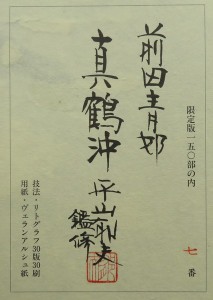 限定版一五〇部の内
七番
前田青邨
真鶴沖
平山郁夫
鑑修
技法・リトグラフ30版30刷
用紙・ヴェランアルシュ紙